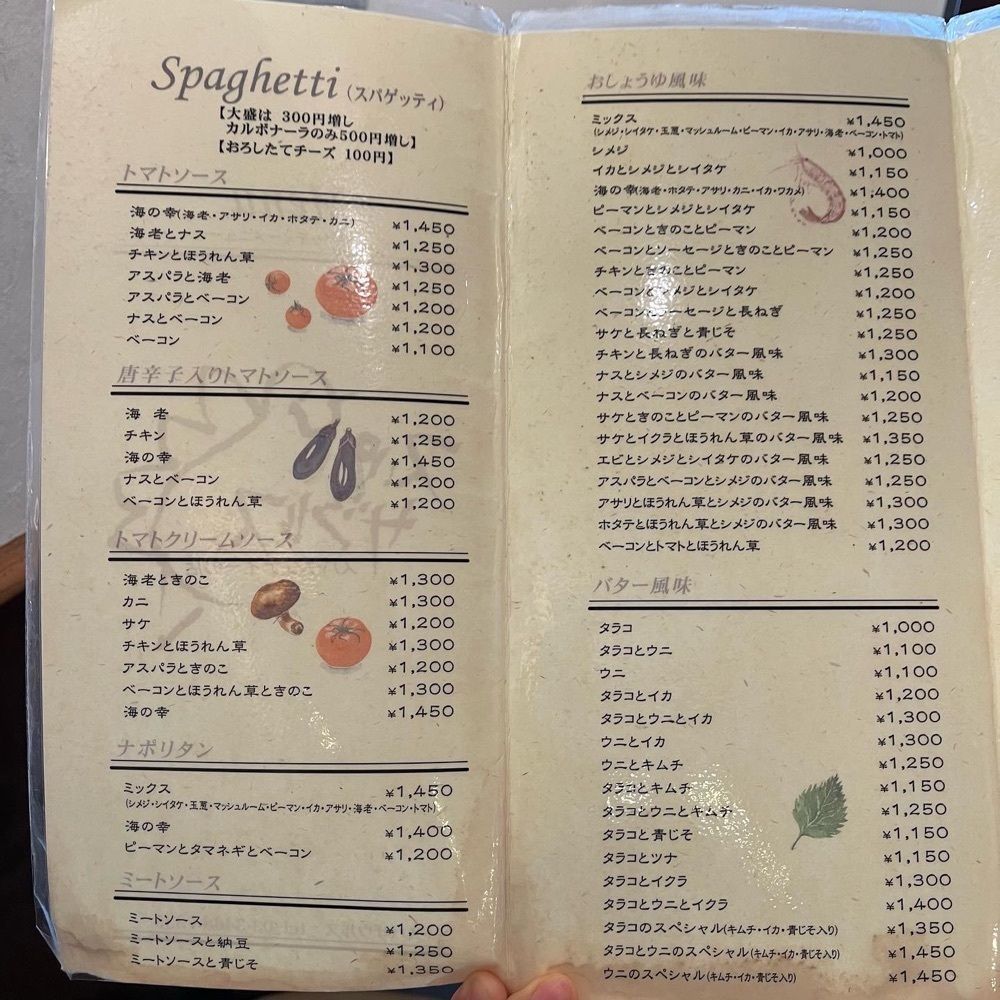 Spaghetti (スパゲッティ)
【大盛は 300円増し
カルボナーラのみ500円増し】
【おろしたてチーズ 100円】
トマトソース
海の幸(海老・アサリ・イカ・ホタテ・カニ) ¥1,450
海老とナス ¥1,250
チキンとほうれん草 ¥1,300
アスパラと海老 ¥1,250
アスパラとベーコン ¥1,200
ナスとベーコン ¥1,200
ベーコン ¥1,100
唐辛子入りトマトソース
海 老 ¥1,200
チキン ¥1,250
海の幸 ¥1,450
ナスとベーコン ¥1,200
ベーコンとほうれん草 ¥1,200
トマトクリームソース
海老ときのこ ¥1,300
カニ ¥1,300
サケ ¥1,200
チキンとほうれん草 ¥1,300
アスパラときのこ ¥1,200
ベーコンとほうれん草ときのこ ¥1,300
海の幸 ¥1,450
ナポリタン
ミックス ¥1,450
(シメジ・シイタケ・玉葱・マッシュルーム・ピーマン・イカ・アサリ・海老・ベーコン・トマト)
海の幸 ¥1,400
ピーマンとタマネギとベーコン ¥1,200
ミートソース
ミートソース ¥1,200
ミートソースと納豆 ¥1,250
ミートソースと青じそ ¥1,350
おしょうゆ風味
ミックス ¥1,450
(シメジ・シイタケ・玉葱・マッシュルーム・ピーマン・イカ・アサリ・海老・ベーコン・トマト)
シメジ ¥1,000
イカとシメジとシイタケ ¥1,150
海の幸(海老・ホタテ・アサリ・カニ・イカ・ワカメ) ¥1,400
ピーマンとシメジとシイタケ ¥1,150
ベーコンときのことピーマン ¥1,200
ベーコンとソーセージときのことピーマン ¥1,250
チキンときのことピーマン ¥1,250
ベーコンとシメジとシイタケ ¥1,200
ベーコンとソーセージと長ねぎ ¥1,250
サケと長ねぎと青じそ ¥1,250
チキンと長ねぎのバター風味 ¥1,300
ナスとシメジのバター風味 ¥1,150
ナスとベーコンのバター風味 ¥1,200
サケときのことピーマンのバター風味 ¥1,250
サケとイクラとほうれん草のバター風味 ¥1,350
エビとシメジとシイタケのバター風味 ¥1,250
アスパラとベーコンとシメジのバター風味 ¥1,250
アサリとほうれん草とシメジのバター風味 ¥1,300
ホタテとほうれん草とシメジのバター風味 ¥1,300
ベーコンとトマトとほうれん草 ¥1,200
バター風味
タラコ ¥1,000
タラコとウニ ¥1,100
ウニ ¥1,100
タラコとイカ ¥1,200
タラコとウニとイカ ¥1,300
ウニとイカ ¥1,300
ウニとキムチ ¥1,250
タラコとキムチ ¥1,150
タラコとウニとキムチ ¥1,250
タラコと青じそ ¥1,150
タラコとツナ ¥1,150
タラコとイクラ ¥1,300
タラコとウニとイクラ ¥1,400
タラコのスペシャル(キムチ・イカ・青じそ入り) ¥1,350
タラコとウニのスペシャル(キムチ・イカ・青じそ入り) ¥1,450
ウニのスペシャル(キムチ・イカ・青じそ入り) ¥1,450